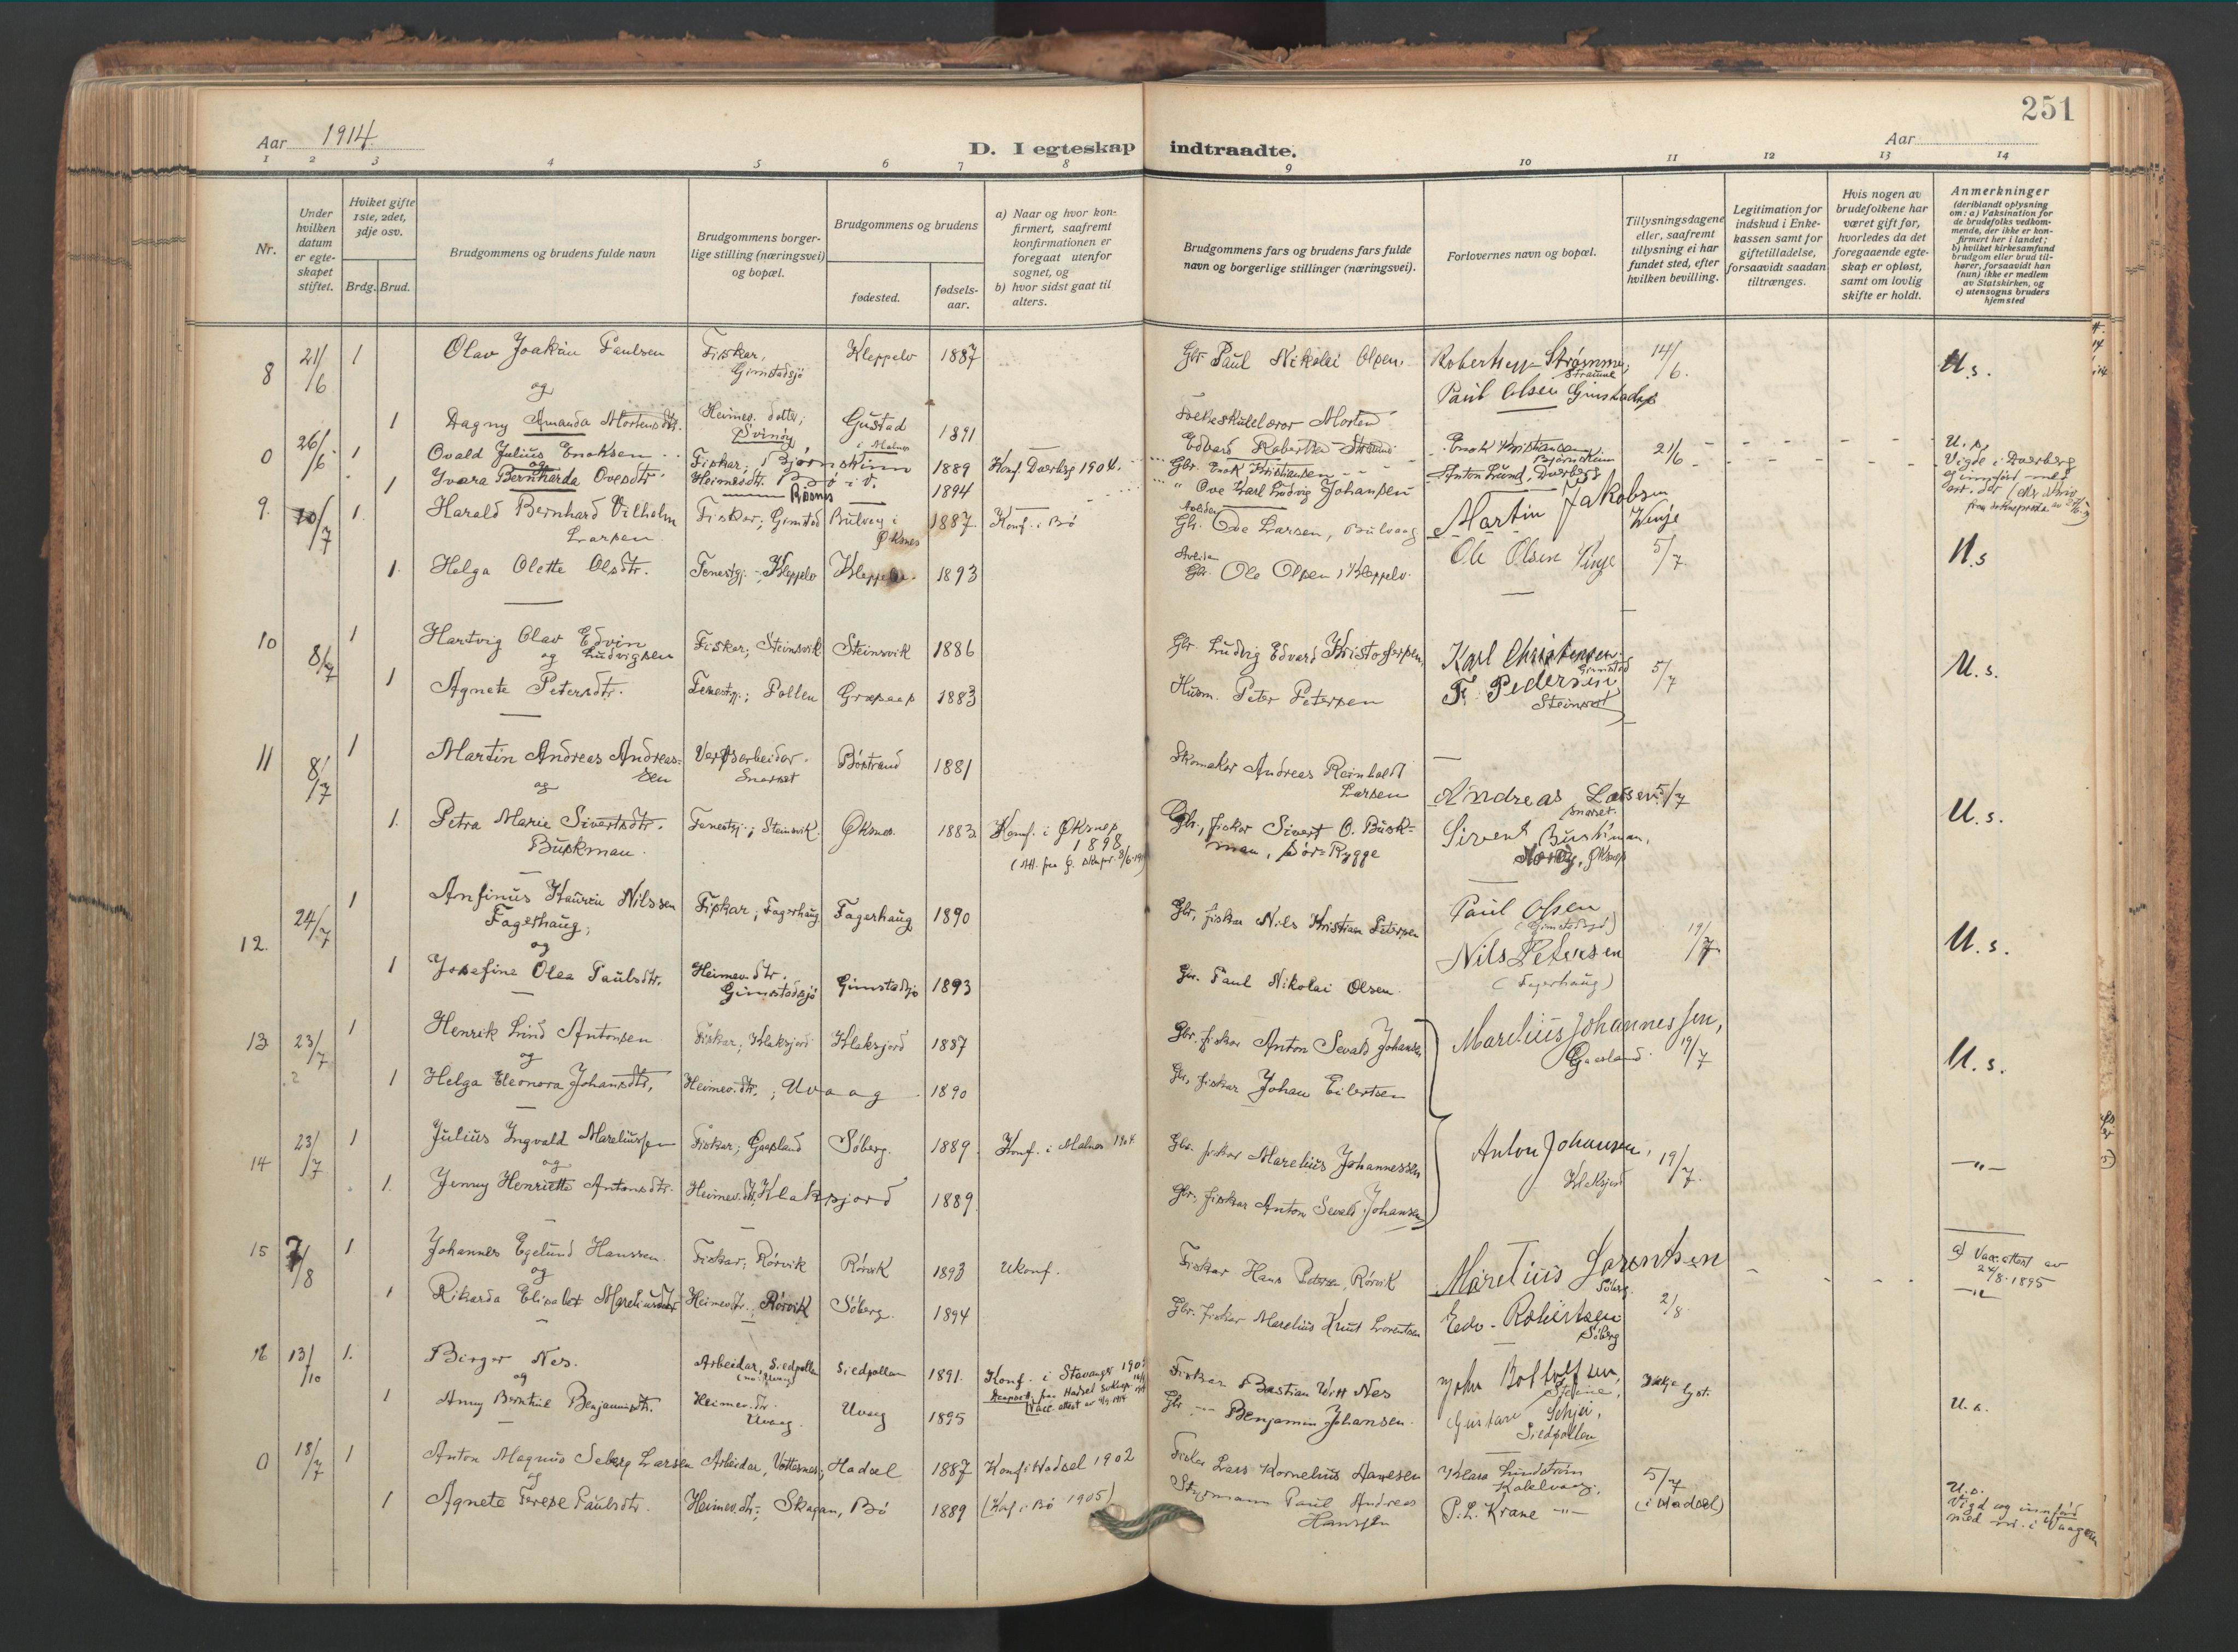 251
Aar 1914
D. I egteskap indtraadte.
Aar
1 2 3 4 5 6 7 8 9 10 11 12 13 14
Nr.
Under hvilken datum er egteskapet stiftet.
Hviket gifte 1ste, 2det, 3dje osv.
Brdg. Brud.
Brudgommens og brudens fulde navn
Brudgommens borgerlige stilling (næringsvei) og bopæl.
Brudgommens og brudens
fødested.
fødselsaar.
a) Naar og hvor konfirmert, saafremt konfirmationen er foregaat utenfor sognet, og
b) hvor sidst gaat til alters.
Brudgommens fars og brudens fars fulde navn og borgerlige stillinger (næringsvei).
Forlovernes navn og bopæl.
Tillysningsdagene eller, saafremt tillysning ei har fundet sted, efter hvilken bevilling.
Legitimation for indskud i Enkekassen samt for giftetilladelse, forsaavidt saadan tiltrænges.
Hvis nogen av brudefolkene har været gift før, hvorledes da det foregaaende egteskap er opløst, samt om lovlig skifte er holdt.
Anmerkninger (deriblandt oplysning om: a) Vaksination for de brudefolks vedkommende, der ikke er konfirmert her i landet; b) hvilket kirkesamfund brudgom eller brud tilhører, forsaavidt han (hun) ikke er medlem av Statskirken, og c) utensogns bruders hjemsted
8 21/6 1 Olav Joakim Paulsen Fiskar, Gimstadsjö Kleppelv 1887 Gbr Paul Nikolai Olsen. Strømme, 14/6. U.s.
og Paul Olsen Gimstadsjö
1 Dagny Amanda Mortensdtr. Heimev. dotter; Svinøy Gustad i Malnes 1891 Folkeskulelæror Morten Edvard Robertsen
0 26/6 1 Ovald Julius Enoksen Fiskar; Bjørnskinn 1889 Konf. Dverberg 1904. Gbr. Enok Kristiansen Enok Kristiansen Bjørnskinn 21/6 U.s.
og
1 Ivara Bernharda Ovesdtr. Heimevdtr. Bø i V. 1894 Ove Karl Ludvig Johansen Anton Lund, Dverberg Vigde i Dverberg
9. 10/7 1. Harald Bernhard Vilhelm Larsen Fiskar; Gimstad Bulvåg i Øksnes 1887. Konf. i Bø Gbr. Ove Larsen, Bulvaag Martin Jakobsen Vinje
1. Helga Olette Olsdtr. Tenestgj.; Kleppelv Kleppelv. 1893 Gbr. Ole Olsen, Kleppelv. Ole Olsen Vinje 5/7 U.s
10 8/7 1 Hartvig Olav Edvin Ludvigsen Fiskar; Steinsvik Steinsvik 1886 Gbr. Ludvig Edvard Kristofersen Karl Christensen Gimstad 5/7 U.s.
og
1 Agnete Petersdtr. Tenestgj.; Pollen 1883 Husm. Peter Petersen Fr. Pedersen
11 8/7 1 Martin Andreas Andreassen Verftsarbeidar. Snarset Böstrand 1881 Skomakar Andreas Reinholdt Larsen Andreas Larsen Snarset. 5/7
og
1. Petra Marie Sivertsdtr. Buskman. Tenestgj.; Steinsvik. Øksnes. 1882 Konf. i Øksnes 1898 Gbr., fiskar Sivert O. Buskman, Sör-Rygge Sivert Buskman, Øksnes U.s.
12. 24/7 1 Anfinus Nilssen Fagerhaug; Fiskar; Fagerhaug Fagerhaug 1890 Gbr, fiskar Nils Kristian Petersen Paul Olsen (Gimstadsjö) 19/7 U.s.
og
1 Josefine Olea Paulsdtr. Heimev.dtr. Gimstadsjö Gimstadsjö 1893 Gbr. Paul Nikolai Olsen Nils Petersen (Fagerhaug)
13 23/7 1 Henrik Lind Antonsen Fiskar; Klaksjord Klaksjord 1887 Gbr. fiskar Anton Sevald Johansen Marelius Johannessen, Gaasland. 19/7 U.s.
og
1 Helga Eleonora Johansdtr. Heimev.dtr.; Uvaag 1890 Gbr, fiskar Johan Eilertsen
14 23/7 1 Julius Ingvald Mareliussen Fiskar; Gaasland Søberg. 1889. Konf. i Malnes 1904 Gbr. fiskar Marelius Johannessen Anton Johansen, Klaksjord 19/7. —"—
og
1. Jenny Henriette Antonsdtr. Heimev.dtr. Klaksjord 1889. Gbr, fiskar Anton Sevald Johansen
15 7/8 1. Johannes Egelund Hanssen. Fiskar; Rörvik Rörvik 1893 Ukonf. Fiskar Hans Petersen, Rörvik Marelius Lorentsen Søberg. a) Vac.attest av 24/8.1895
og
1 Rikarda Elisabet Mareliusdtr Heimev.dtr. Rörvik Søberg. 1894 Gbr. fiskar Marelius Knut Lorentsen Edv. Robertsen Søberg 2/8 —"—
16 13/10 1. Birger Nes. Arbeidar, Sildpollen Sildpollen 1891. Konf. i Stavanger Fiskar Bastian Witt Nes John Bottolfsen, Steine, Ikkje lyst.
og
1 Anny Bernthine Benjaminsdtr. Heimev.dtr. Uvaag. Uvaag 1895 Gbr. —"— Benjamin Johansen. Gustav Schjei, Sildpollen U.s.
0 18/7 1 Anton Magnus Seberg Larsen Arbeidar, Hadsel 1887 Konf. i Hadsel 1902 Fiskar Lars Kornelius Klara Lindstrøm Kabelvaag. 5/7 (i Hadsel)
og
1 Agnete Terese Paulsdtr. Heimev.dtr.; Skagan, Bø 1889 (Konf. i Bø 1905) Styrmann Paul Andreas Hanssen P. L. Krane —"— U.s. Vigd og innførd med nr. i Vaagan